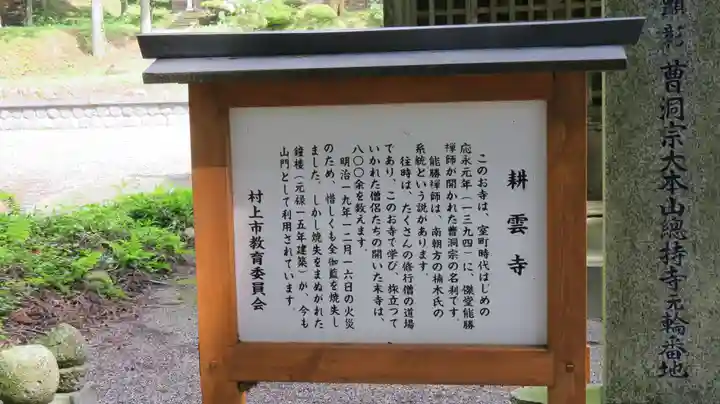 顕彰 曹洞宗大本山總持寺元輪番地
耕雲寺
このお寺は、室町時代はじめの
応永元年（一三九四）に、傑堂能勝
禅師が開かれた曹洞宗の名刹です。
能勝禅師は、南朝方の楠木氏の
系統という説があります。
往時は、たくさんの修行僧の道場
であり、このお寺で学び、旅立って
いかれた僧侶たちの開いた末寺は、
八〇〇余を数えます。
明治一九年一二月一六日の火災
のため、惜しくも全伽藍を焼失し
ました。しかし焼失をまぬがれた
鐘楼（元禄一五年建築）が、今も
山門として利用されています。
村上市教育委員会